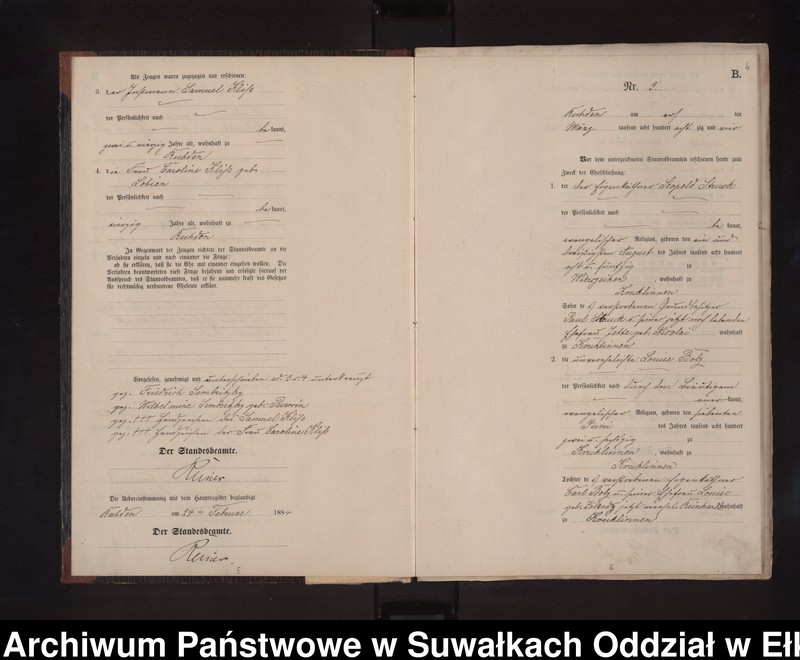 Als Zeugen waren zugezogen und erschienen:
3. der Instmann Samuel Kliß
der Persönlichkeit nach
be kannt,
zwei u. vierzig Jahre alt, wohnhaft zu
Ruhden
4. die Frau Caroline Kliß geb.
Lobien
der Persönlichkeit nach
be kannt,
vierzig Jahre alt, wohnhaft zu
Ruhden
In Gegenwart der Zeugen richtete der Standesbeamte an die
Verlobten einzeln und nach einander die Frage:
ob sie erklären, daß sie die Ehe mit einander eingehen wollen. Die
Verlobten beantworteten diese Frage bejahend und erfolgte hierauf der
Ausspruch des Standesbeamten, daß er sie nunmehr kraft des Gesetzes
für rechtmäßig verbundene Eheleute erkläre.
Vorgelesen, genehmigt und unterschrieben ad 3 u 4 unterkreuzt
gez. Friedrich Sembritzky
gez. Wilhelmine Sembritzky geb.
gez. +++ Handzeichen des Samuel Kliß
gez. +++ Handzeichen der Frau Caroline Kliß
Der Standesbeamte.
Reiner
Die Uebereinstimmung mit dem Hauptregister beglaubigt
Ruhden am 24 ten Februar 1884
Der Standesbeamte.
Reiner.
5
4
B.
Nr. 3.
Ruhden am den
März tausend acht hundert acht zig und vier
Vor dem unterzeichneten Standesbeamten erschienen heute zum
Zweck der Eheschließung:
1. der der Eigenkäthner Leopold Struck
der Persönlichkeit nach
be kannt,
evangelischer Religion, geboren den ein und
dreißigsten August des Jahres tausend acht hundert
acht u. fünfzig zu
, wohnhaft zu
Kruklinnen
Sohn des verstorbenen Grundbesitzer
Paul Struck u. seiner jetzt noch lebenden
Ehefrau Jette geb. Nicolai wohnhaft
zu Kruklinnen
2. die unverehelichte Louise Botz
der Persönlichkeit nach durch den Bräutigam
kannt,
evangelischer Religion, geboren den siebenten
Juni des Jahres tausend acht hundert
zwei u. sechszig zu
Kruklinnen, wohnhaft zu
Kruklinnen
Tochter des verstorbenen Eigenkäthner
Karl Botz u. seiner Ehefrau Louise
geb. jetzt verehel. Reinhard wohnhaft
zu Kruklinnen
6
Archiwum Państwowe w Suwałkach Oddział w Ełk